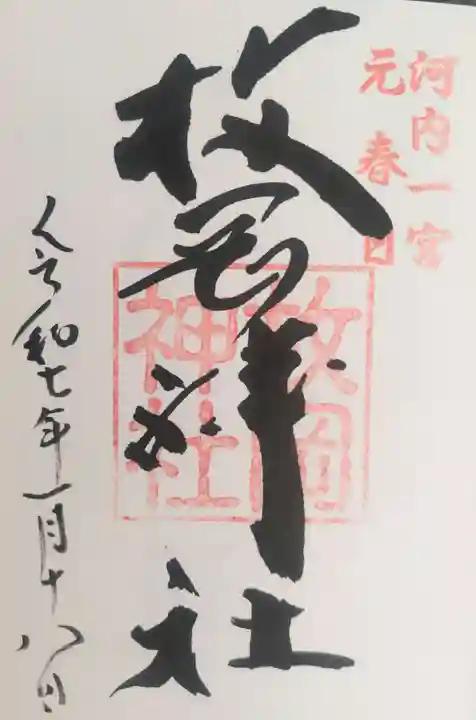 河内一宮
元春日
枚岡神社
枚岡神社
令和七年一月十八日